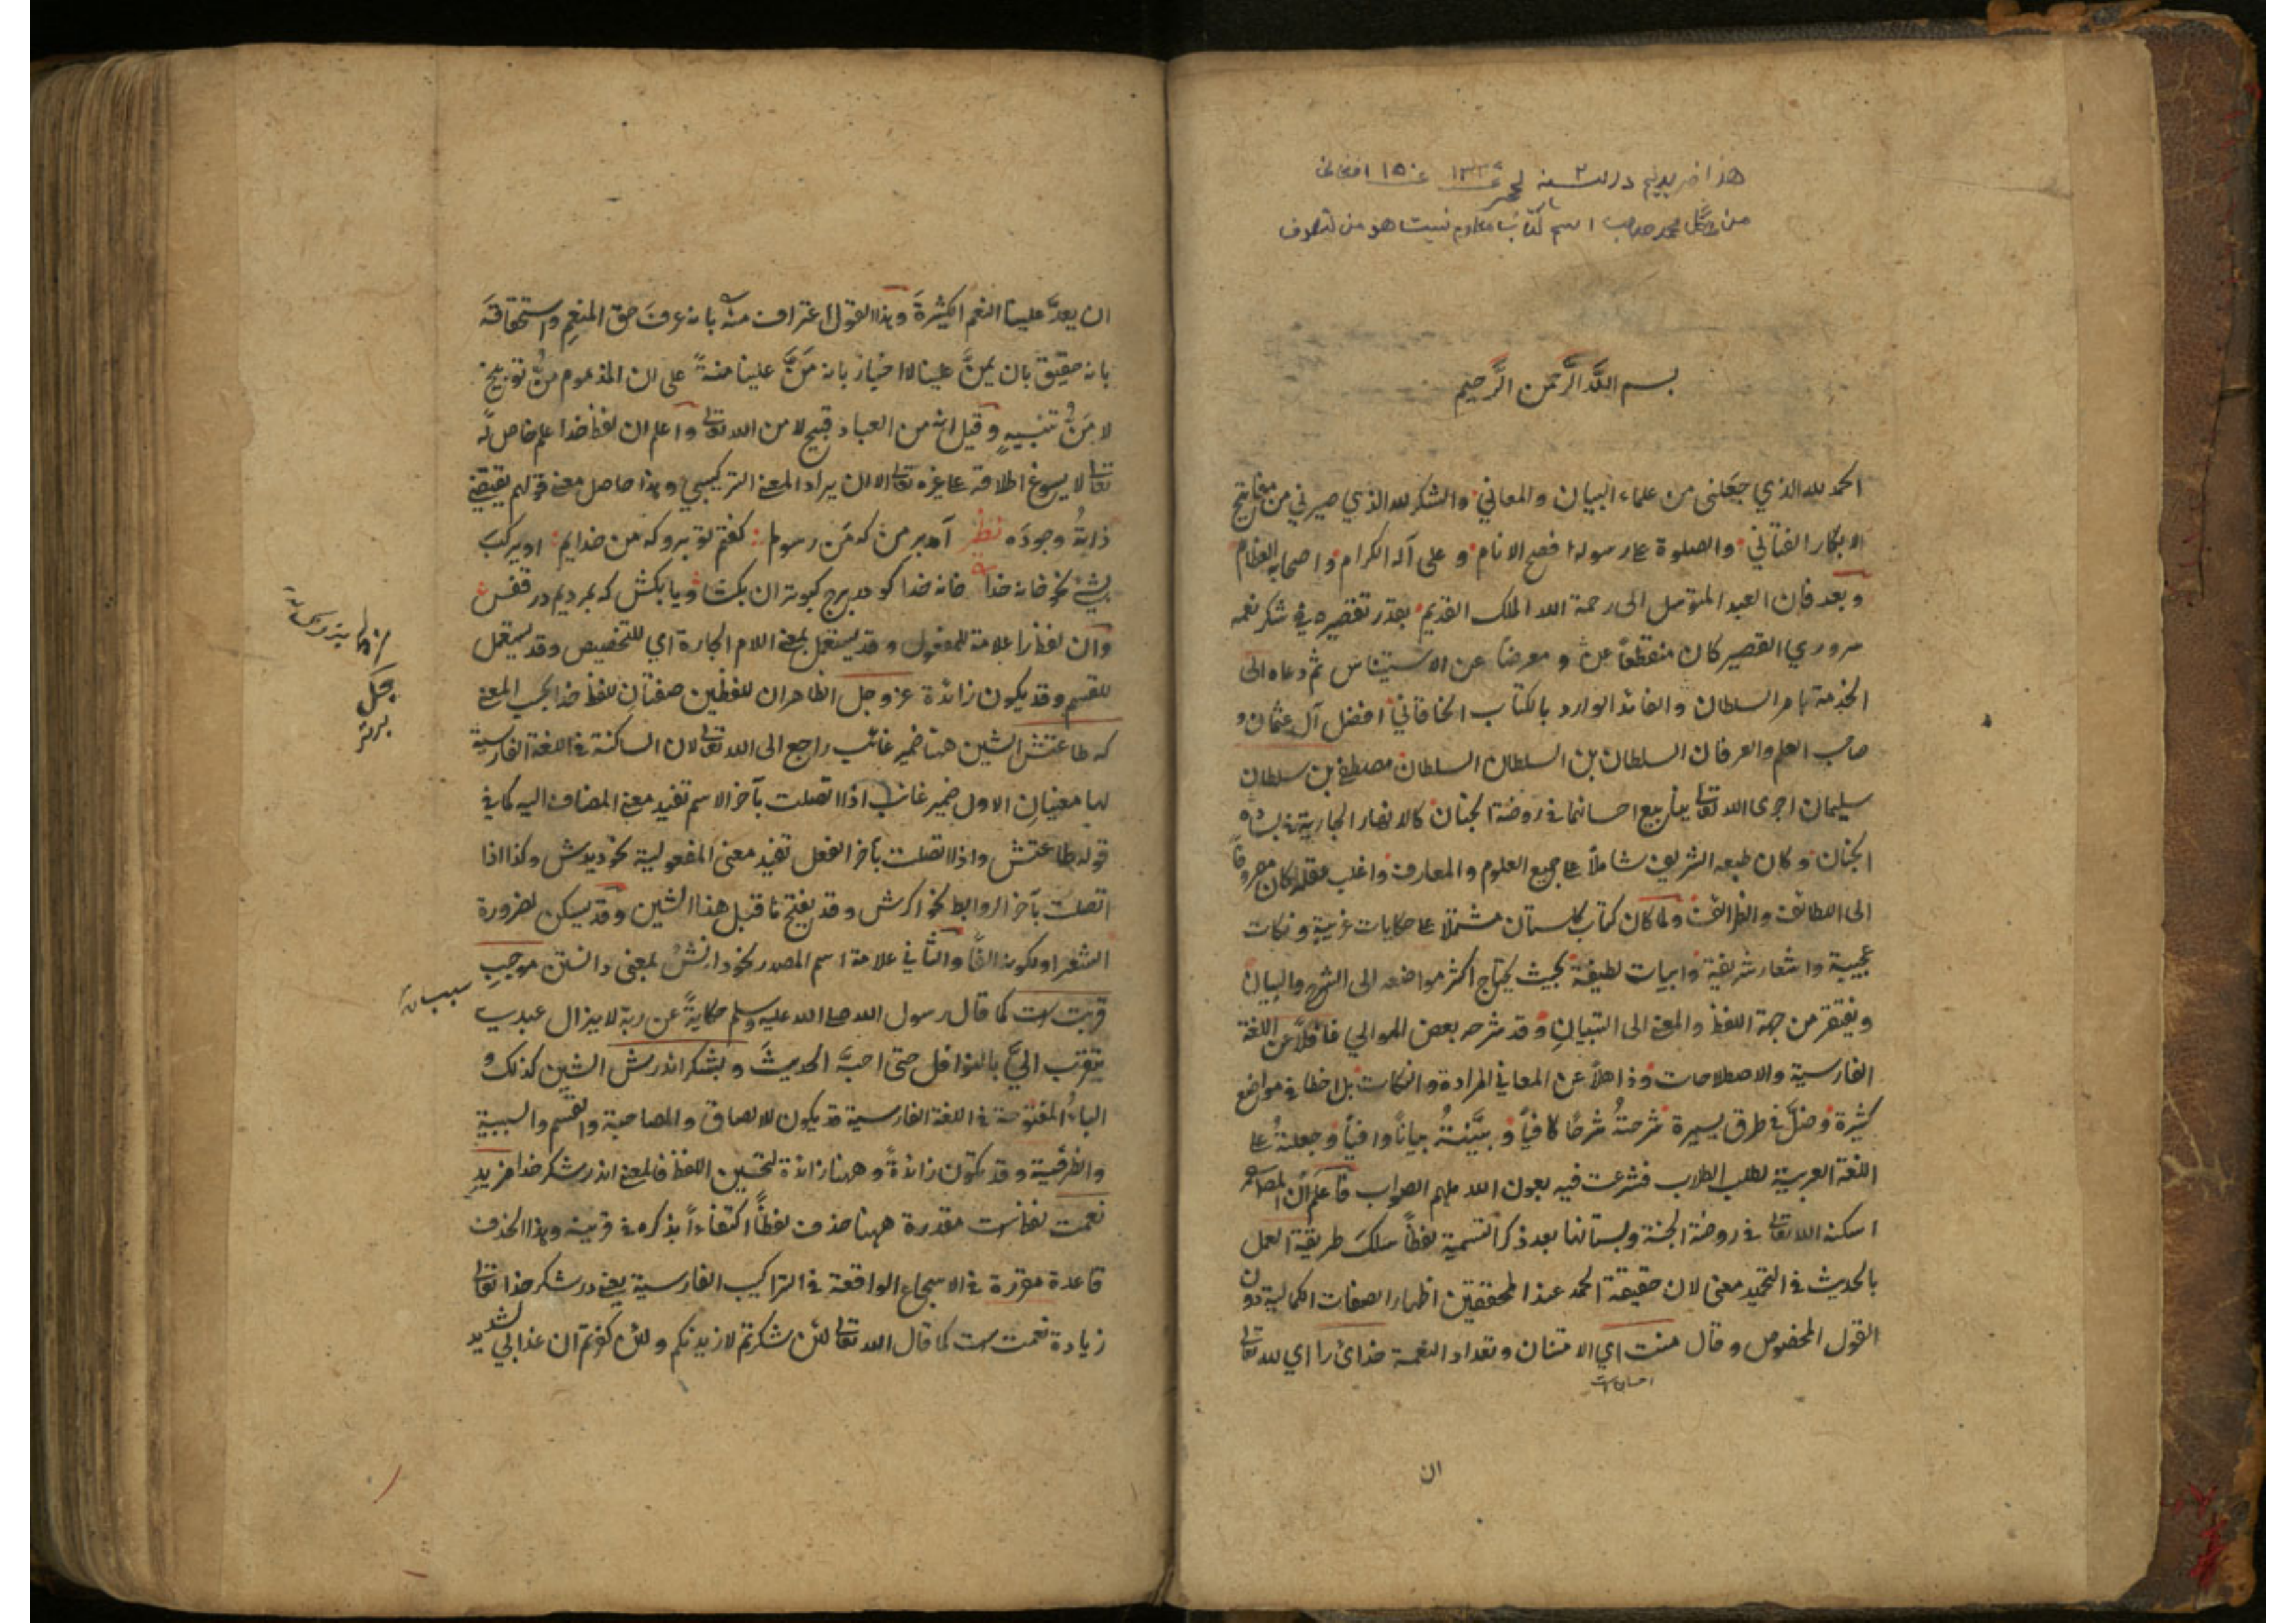 هذا خریدیم در سنه
من محمد صاحب اسم کتاب معلوم نیست هو من تصوف
بسم الله الرحمن الرحيم
الحمد لله الذي جعلني من علماء البيان والمعاني والشكر لله الذي صيرني من مفاتيح
الابكار الفتاني والصلوة على رسوله افصح الانام وعلى آله الكرام واصحابه العظام
وبعد فان العبد المتوسل الى رحمة الله الملك القديم بعذر تقصيره في شكر نعمه
سروري القصير كان منقطعاً عن ومعرضاً عن الاستيناس ثم دعاه الى
الخدمة بامر السلطان والفائد الوارد بالكتاب الخاقاني افضل آل عثمان و
صاحب العلم والعرفان السلطان بن السلطان السلطان مصطفى بن سلطان
سليمان اجرى الله تعالى ينابيع احسانهما في روضة الجنان كالانهار الجارية في بستان
الجنان وكان طبعه الشريف شاملاً على جميع العلوم والمعارف واغلب عقله كان مصروفاً
الى اللطائف والظرائف ولما كان كتاب كلستان مشتملا على حكايات غريبة ونكات
عجيبة واشعار شريفة وابيات لطيفة بحيث يحتاج اكثر مواضعه الى الشرح والبيان
ويفتقر من جهة اللفظ والمعنى الى التبيان وقد شرحه بعض الموالي غافلاً عن اللغة
الفارسية والاصطلاحات وذاهلاً عن المعاني المرادة والنكات بل اخطا في مواضع
كثيرة وضل في طرق يسيرة شرحته شرحاً كافياً وبينته بياناً وافياً وجعلته على
اللغة العربية لطلب الطلاب فشرعت فيه بعون الله ملهم الصواب فاعلم ان المص
اسكنه الله تعالى في روضة الجنة وبستانها بعد ذكر التسمية لفظاً سلك طريقة العمل
بالحديث في التحميد معنى لان حقيقة الحمد عند المحققين اظهار الصفات الكمالية دون
القول المخصوص وقال منت اي الامتنان وتعداد النعمة خدائ را اي لله تعالى
احسان
ان
ان يعد علينا النعم الكثيرة وهذا القول اعتراف منه بانه عرف حق المنعم واستحقاقه
بانه حقيق بان يمن علينا لا اخبار بانه من علينا منة على ان المذموم من توبيخ
لا من تنبيه وقيل انه من العباد قبيح لا من الله تعالى واعلم ان لفظ خدا علم خاص له
تعالى لا يسوغ اطلاقه على غيره تعالى الا ان يراد المعنى التركيبي وهذا حاصل معنى قولهم يقتضي
ذاته وجوده نظم آمد بر من كه من رسولم گفتم تو برو كه من خدايم او يركب
بشئ نحو خانه خدا خانه خدا كو در برج كبوتران بكشا ويا بكش كه بمرديم در قفس
وان لفظ را علامة للمفعول وقد يستعمل بمعنى اللام الجارة اي للتخصيص وقد يستعمل
للقسم وقد يكون زائدة عز وجل الظاهر ان للفظين صفتان للفظ خدا بحسب المعنى
كه طاعتش الشين هنا ضمير غائب راجع الى الله تعالى لان الساكنة في اللغة الفارسية
لها معنيان الاول ضمير غائب اذا اتصلت بآخر الاسم تفيد معنى المضاف اليه كما في
قوله طاعتش واذا اتصلت بآخر الفعل تفيد معنى المفعولية نحو ديدش وكذا اذا
اتصلت بآخر الروابط نحو اكرش وقد يفتح ما قبل هذا الشين وقد يسكن لضرورة
الشعر او لكونه الفا والثاني علامة اسم المصدر نحو دانش بمعنى دانستن موجب
قربت است كما قال رسول الله صلى الله عليه وسلم حكاية عن ربه لا يزال عبدي
يتقرب الي بالنوافل حتى احب الحديث و بشكر اندرش الشين كذلك و
الباء المفتوحة في اللغة الفارسية قد يكون للالصاق والمصاحبة والقسم والسببية
والظرفية وقد يكون زائدة وههنا زائدة لتحسين اللفظ فالمعنى اندر شكر خدا مزيد
نعمت لفظ است مقدرة ههنا حذف لفظاً اكتفاءاً بذكره في قرينه وهذا الحذف
قاعدة مقررة في الاسجاع الواقعة في التراكيب الفارسية يعني در شكر خدا تعالى
زيادة نعمت است كما قال الله تعالى لئن شكرتم لازيدنكم ولئن كفرتم ان عذابي لشديد